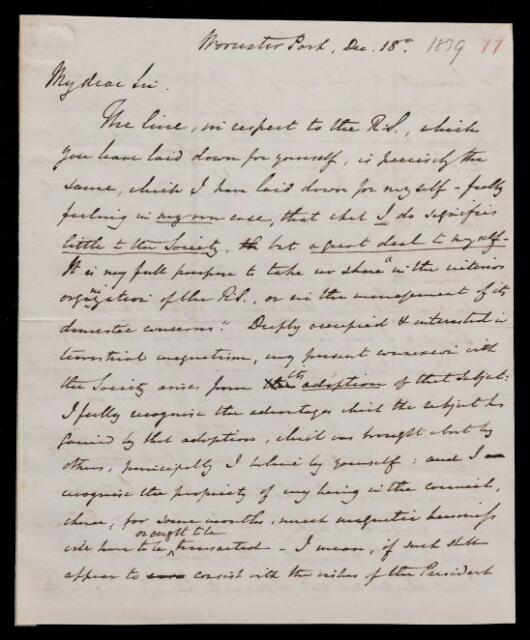 Worcester Park, Dec. 18th 1839 77
My dear Sir.
The line, in respect to the R.S., which
you have laid down for yourself, is precisely the
same, which I have laid down for myself - fully
feeling in my own case, that what I do signifies
little to the Society, but a great deal to myself -
It is my full purpose to take no share "in the interior
organization of the R.S., or in the management of its
domestic concerns." Deeply occupied & interested in
terrestrial magnetism, my present connexion with
the Society arises from its adoption of that subject:
I fully recognise the advantages which the subject has
gained by that adoption, which was brought about by
others, principally I believe by yourself: and I
recognise the propriety of my being in the council,
where, for some months, much magnetic business
or ought to be
will have to be transacted - I mean, if such shall
appear to consist with the wishes of the President